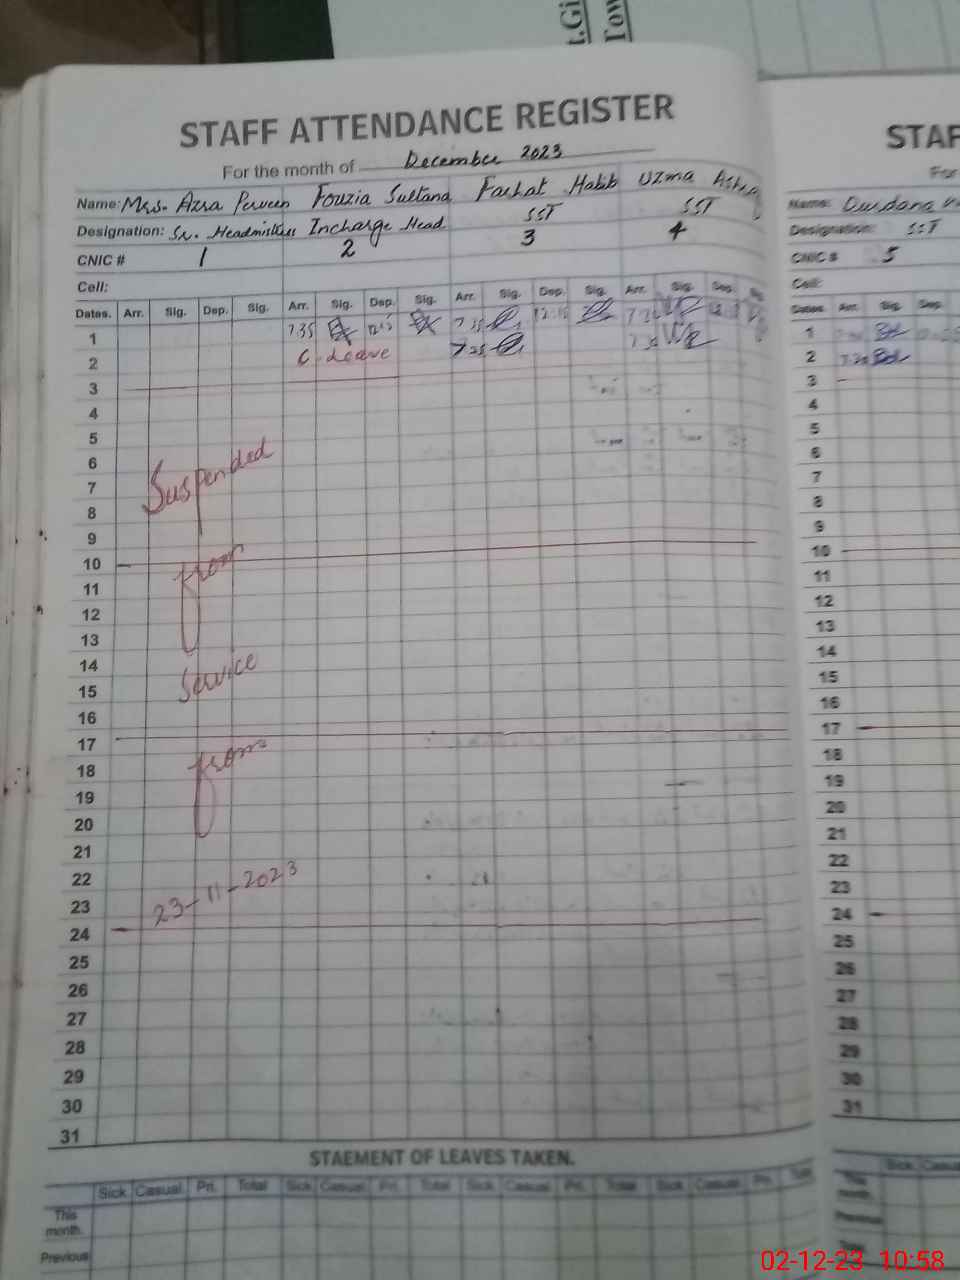 t.Gi
Tow
STAFF ATTENDANCE REGISTER
For the month of December 2023
Name: Mrs. Azra Perveen Fouzia Sultana Farhat Habib Uzma
Designation: Sr. Headmistress Incharge Head SST SST
CNIC # 1 2 3 4
Cell:
Dates. Arr. Sig. Dep. Sig. Arr. Sig. Dep. Sig. Arr. Sig. Dep. Sig. Arr. Sig. Dep. Sig.
1 7.35 12.15
2 C. Leave 7.25 7.30
3
4
5
6
7 Suspended
8
9
10
11 from
12
13
14
15 Service
16
17
18 from
19
20
21
22
23 23-11-2023
24
25
26
27
28
29
30
31
STAEMENT OF LEAVES TAKEN.
Sick Casual Pri. Total Sick Casual Pri. Total Sick Casual Pri. Total Sick Casual Pri. Total
This
month.
Previous
STAF
For
Name:
Designation: SST
CNIC # 5
Cell:
Dates. Arr. Sig. Dep.
1
2 7.20
3
4
5
6
7
8
9
10
11
12
13
14
15
16
17
18
19
20
21
22
23
24
25
26
27
28
29
30
31
Sick Casual
This
month.
Previous
Total
02-12-23 10:58